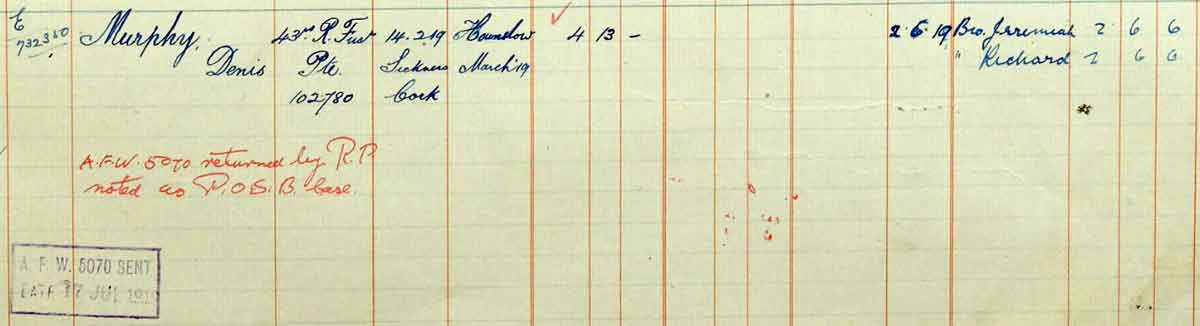 E
732350
Murphy, 43rd R. Fus 14.2.19 Hounslow 4 13 - 2.6.19 Bro. Jeremiah 2 6 6
Denis Pte. Sickness March '19 " Richard 2 6 6
102780 Cork
A.F.W. 5070 returned by R.P.
noted as P.O.S.B. case.
A. F. W. 5070 SENT
DATE 17 JUL 1919